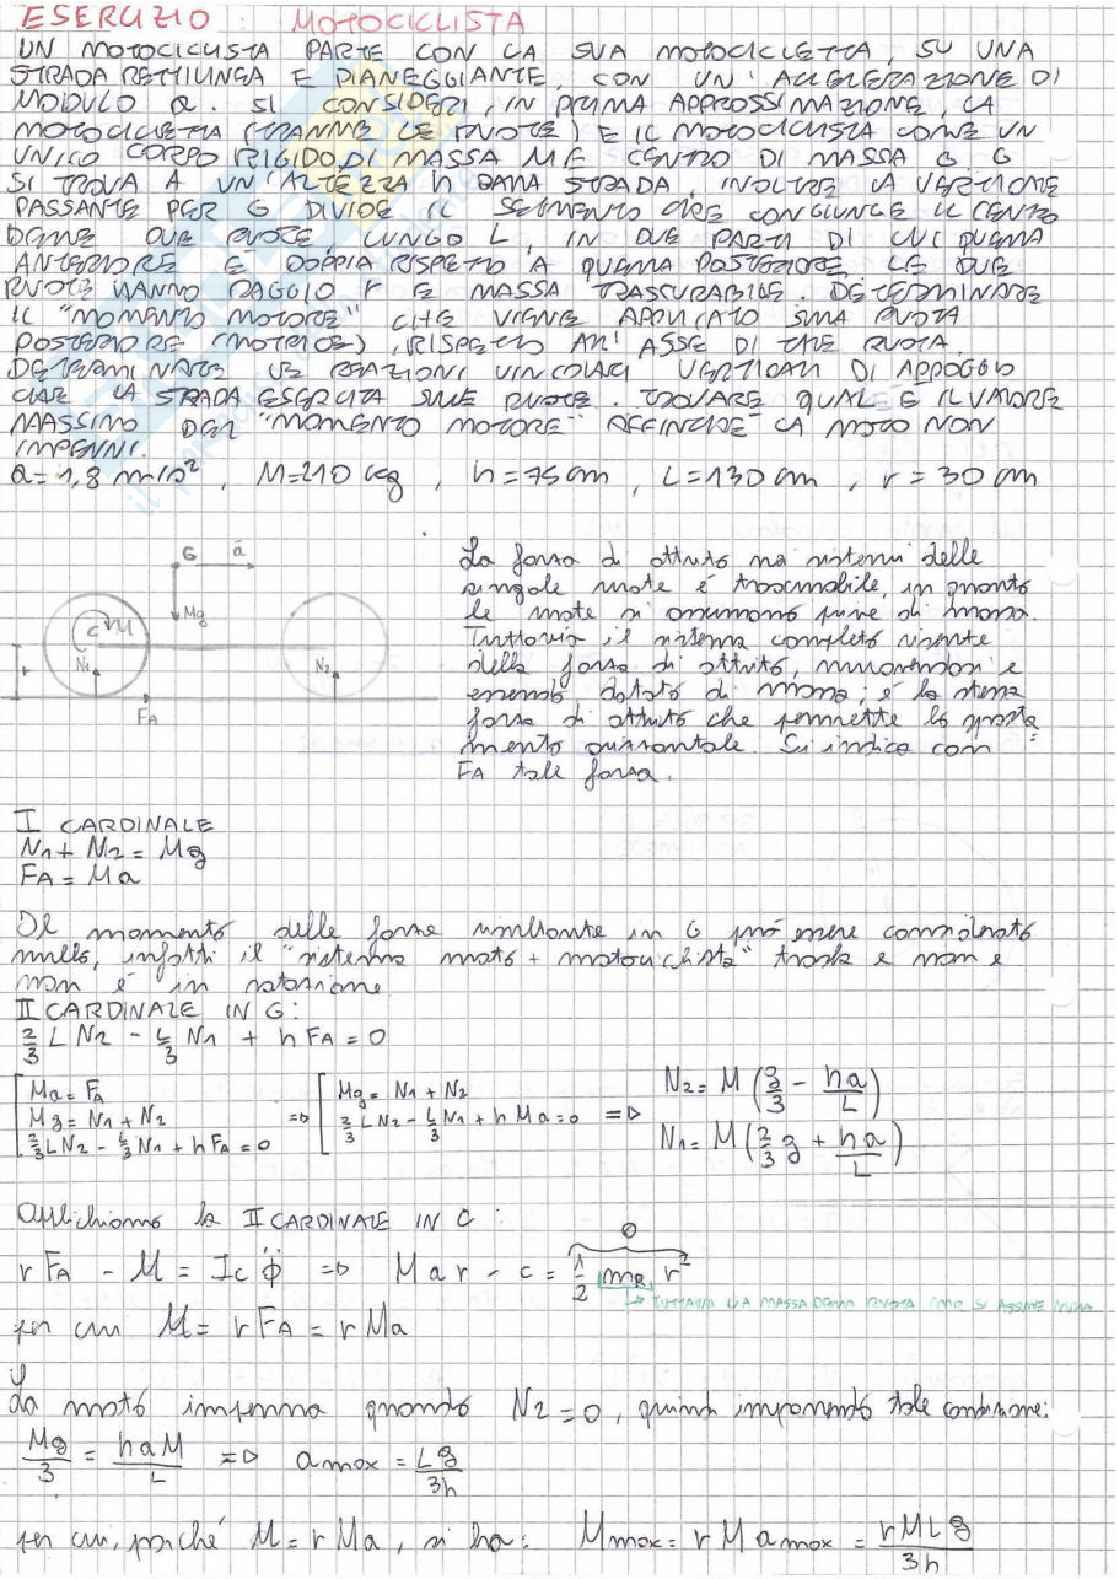 ESERCIZIO : MOTOCICLISTA
UN MOTOCICLISTA PARTE CON LA SUA MOTOCICLETTA, SU UNA
STRADA RETTILINEA E PIANEGGIANTE, CON UN'ACCELERAZIONE DI
MODULO a. SI CONSIDERI, IN PRIMA APPROSSIMAZIONE, LA
MOTOCICLETTA (TRANNE LE RUOTE) E IL MOTOCICLISTA COME UN
UNICO CORPO RIGIDO DI MASSA M E CENTRO DI MASSA G. G
SI TROVA A UN'ALTEZZA h DALLA STRADA, INOLTRE LA VERTICALE
PASSANTE PER G DIVIDE IL SEGMENTO CHE CONGIUNGE IL CENTRO
DELLE DUE RUOTE, LUNGO L, IN DUE PARTI DI CUI QUELLA
ANTERIORE E' DOPPIA RISPETTO A QUELLA POSTERIORE. LE DUE
RUOTE HANNO RAGGIO r E MASSA TRASCURABILE. DETERMINARE
IL "MOMENTO MOTORE" CHE VIENE APPLICATO SULLA RUOTA
POSTERIORE (MOTRICE), RISPETTO ALL'ASSE DI TALE RUOTA.
DETERMINARE LE REAZIONI VINCOLARI VERTICALI DI APPOGGIO
CHE LA STRADA ESERCITA SULLE RUOTE. TROVARE QUAL E' IL VALORE
MASSIMO DEL "MOMENTO MOTORE" AFFINCHE' LA MOTO NON
IMPENNI.
a=1,8 m/s², M=210 kg, h=75 cm, L=130 cm, r=30 cm
G a
Mg
C M
N1 N2
r
FA
La forza di attrito nei sistemi delle
singole ruote è trascurabile, in quanto
le ruote si assumono prive di massa.
Tuttavia il sistema completo risente
della forza di attrito, muovendosi e
essendo dotato di massa; è la stessa
forza di attrito che permette lo sposta=
mento orizzontale. Si indica con
FA tale forza.
I CARDINALE
N1 + N2 = Mg
FA = Ma
Il momento delle forze risultante in G può essere considerato
nullo, infatti il "sistema moto + motociclista" trasla e non
è in rotazione.
II CARDINALE IN G:
2/3 L N2 - L/3 N1 + h FA = 0
Ma = FA
Mg = N1 + N2
2/3 L N2 - L/3 N1 + h FA = 0
=> Mg = N1 + N2
2/3 L N2 - L/3 N1 + h Ma = 0
=> N2 = M (g/3 - ha/L)
N1 = M (2/3 g + ha/L)
Applichiamo la II CARDINALE IN C:
0
r FA - M = Ic φ̈ => Mar - c = 1/2 mR r²
per cui M = r FA = r Ma
La moto impenna quando N2 = 0, quindi imponendo tale condizione:
Mg/3 = haM/L => a max = Lg/3h
per cui, poiché M = r Ma, si ha: M max = r M a max = rMLg/3h